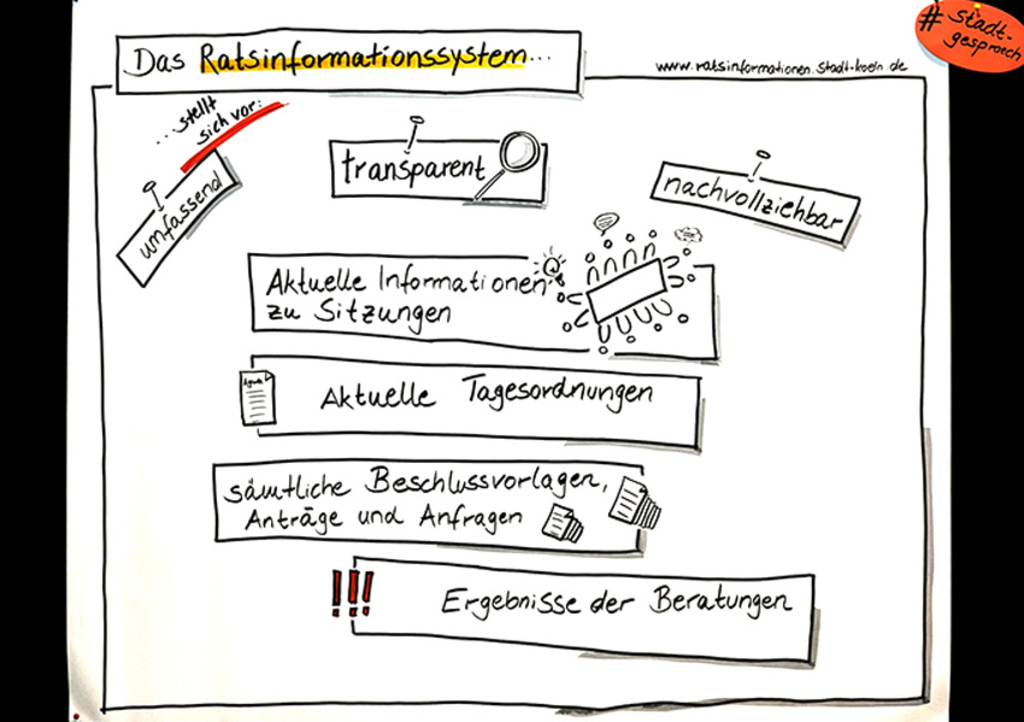 # Stadt-
gespraech
Das Ratsinformationssystem...
www.ratsinformationen.stadt-koeln.de
...stellt
sich vor:
umfassend
transparent
nachvollziehbar
Aktuelle Informationen
zu Sitzungen
Agenda
Aktuelle Tagesordnungen
sämtliche Beschlussvorlagen,
Anträge und Anfragen
!!!
Ergebnisse der Beratungen